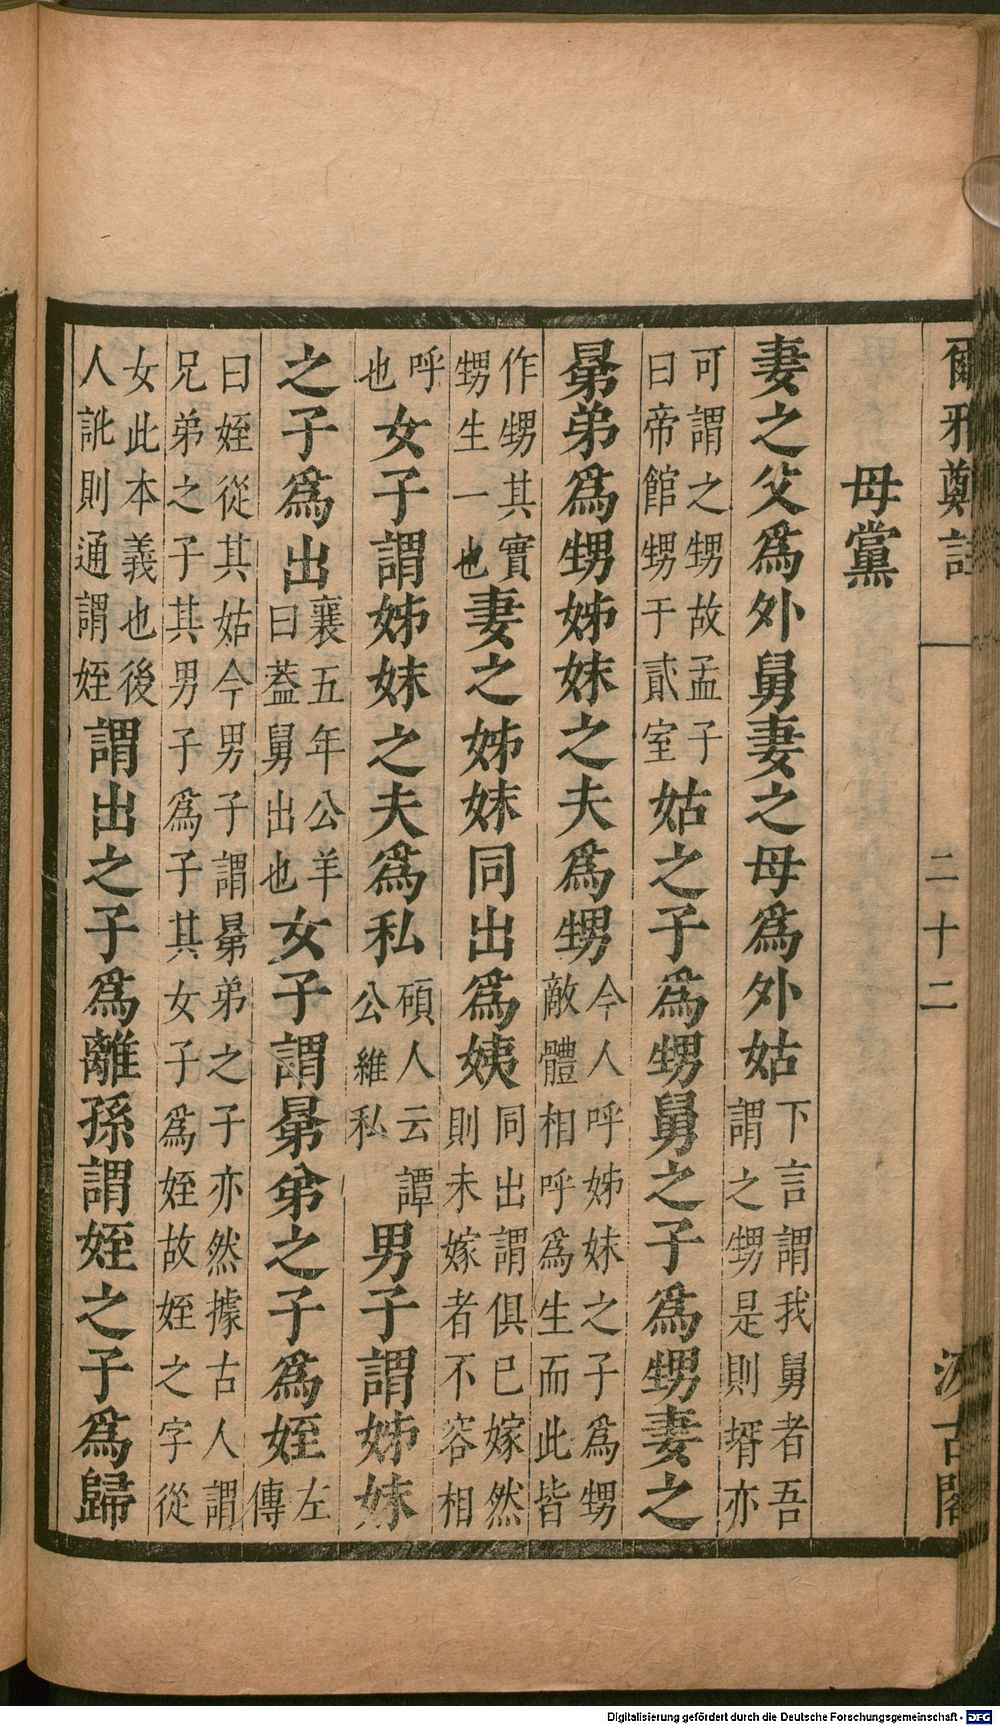 爾雅鄭註 二十二 汲古閣
母黨
妻之父爲外舅妻之母爲外姑下言謂我舅者吾謂之甥是則壻亦
可謂之甥故孟子曰帝館甥于貳室姑之子爲甥舅之子爲甥妻之
晜弟爲甥姊妹之夫爲甥今人呼姊妹之子爲甥敵體相呼爲生而此皆
作甥其實甥生一也妻之姊妹同出爲姨同出謂俱已嫁然則未嫁者不容相
呼也女子謂姊妹之夫爲私碩人云譚公維私男子謂姊妹
之子爲出襄五年公羊曰葢舅出也女子謂晜弟之子爲姪左傳
曰姪從其姑今男子謂晜弟之子亦然據古人謂兄弟之子其男子爲子其女子爲姪故姪之字從
女此本義也後人訛則通謂姪謂出之子爲離孫謂姪之子爲歸
Digitalisierung gefördert durch die Deutsche Forschungsgemeinschaft - DFG